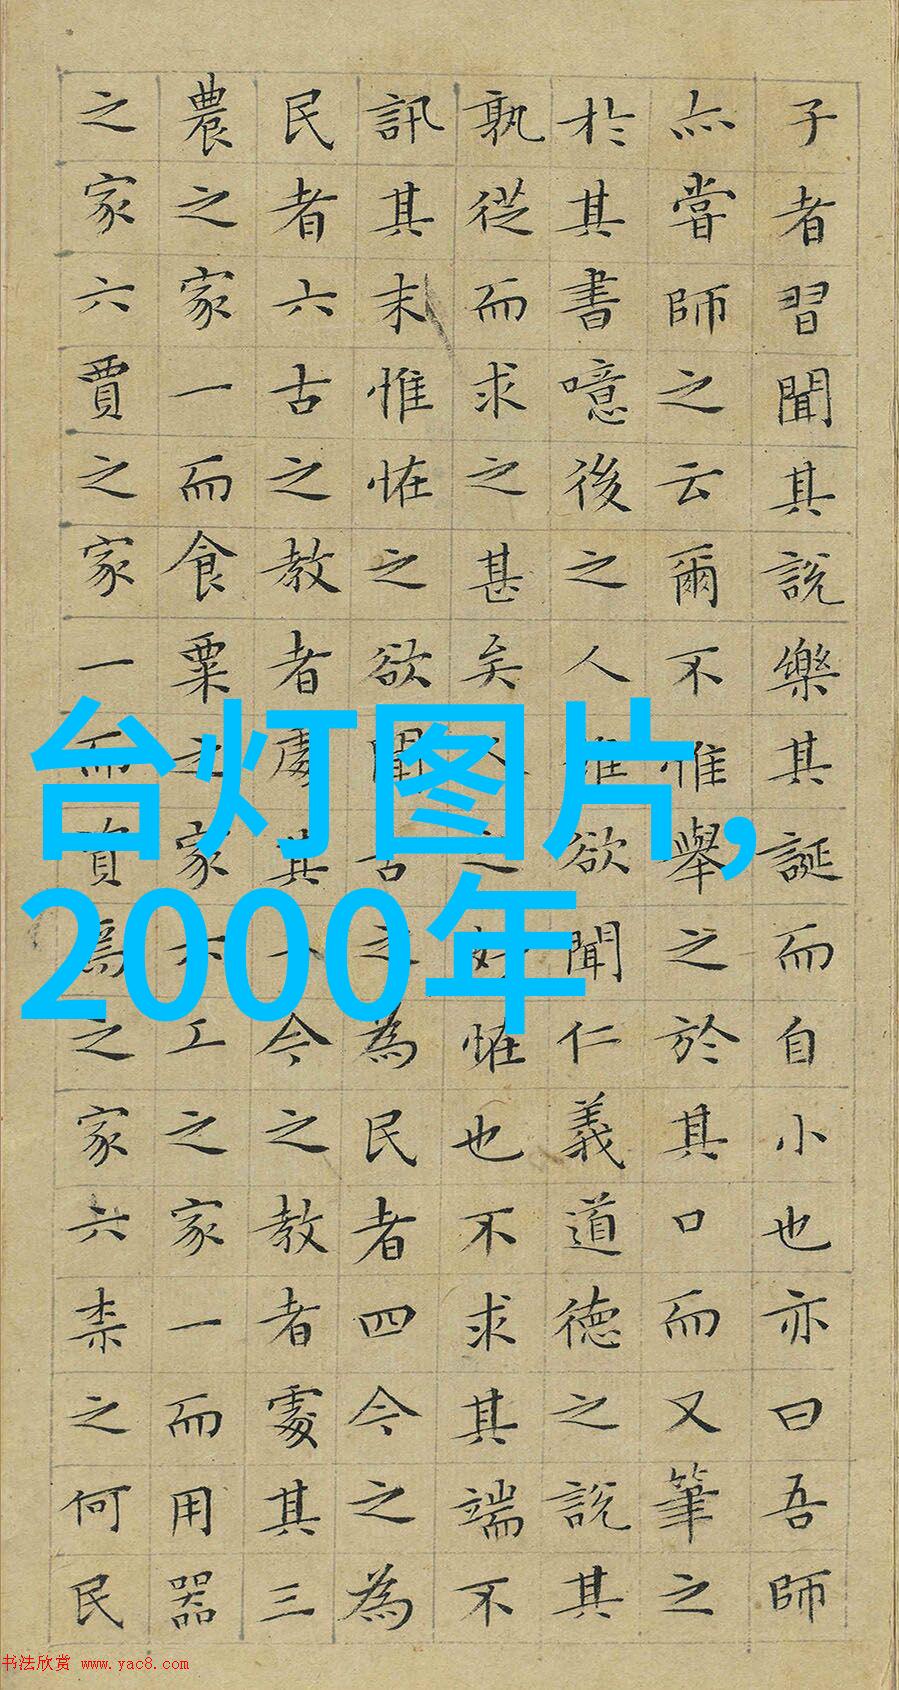 子者習聞其說樂其誕而自小也亦曰吾師
亦嘗師之云爾不惟舉之於其口而又筆之
於其書噫後之人雖欲聞仁義道德之說其
孰從而求之甚矣人之好怪也不求其端不
訊其末惟怪之欲聞古之為民者四今之為
民者六古之教者處其一今之教者處其三
農之家一而食粟之家六工之家一而用器
之家六賈之家一而資焉之家六柰之何民
台灯图片,
2000年
书法欣赏 www.yac8.com